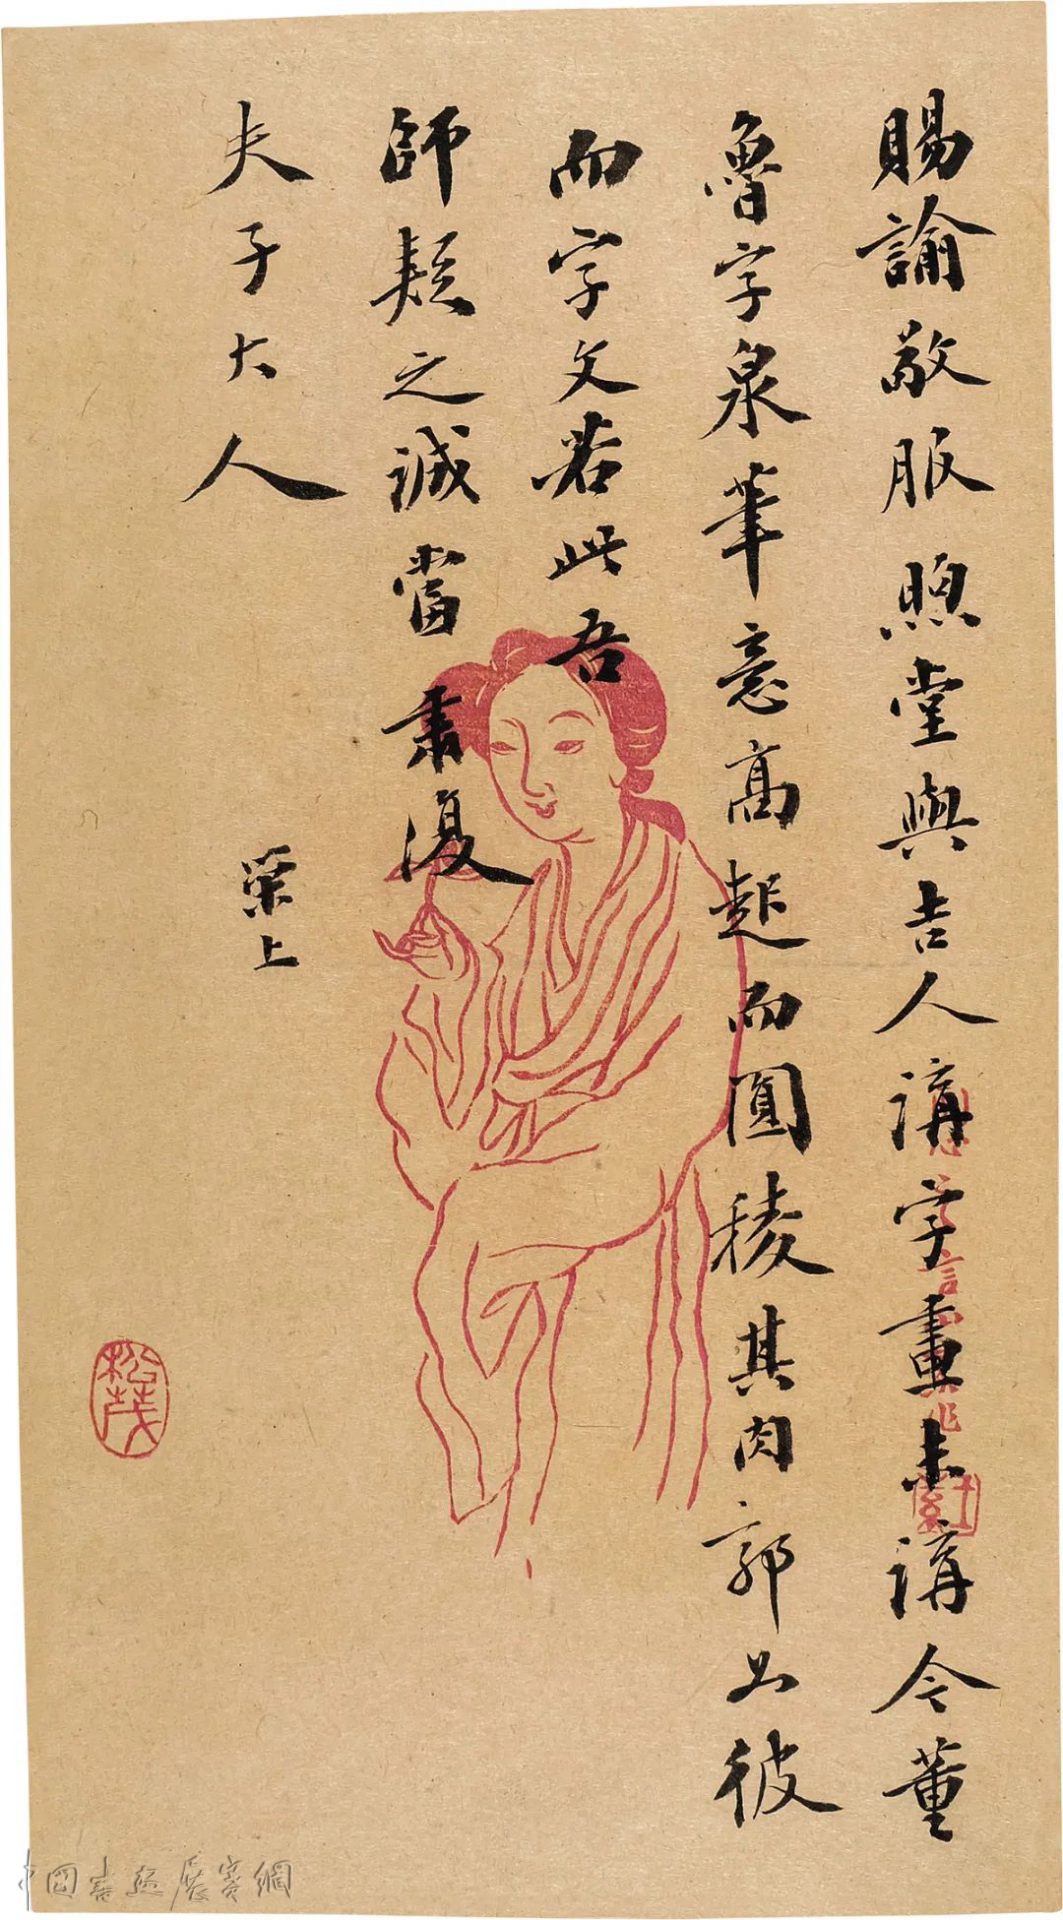 賜諭敬服照堂與吉人講字畫未講今董
魯字泉筆意高超而圓稜其肉郭公彼
而字文若此吾
師疑之誠當肅復
夫子大人
榮上
松茂
中國書法展賽網